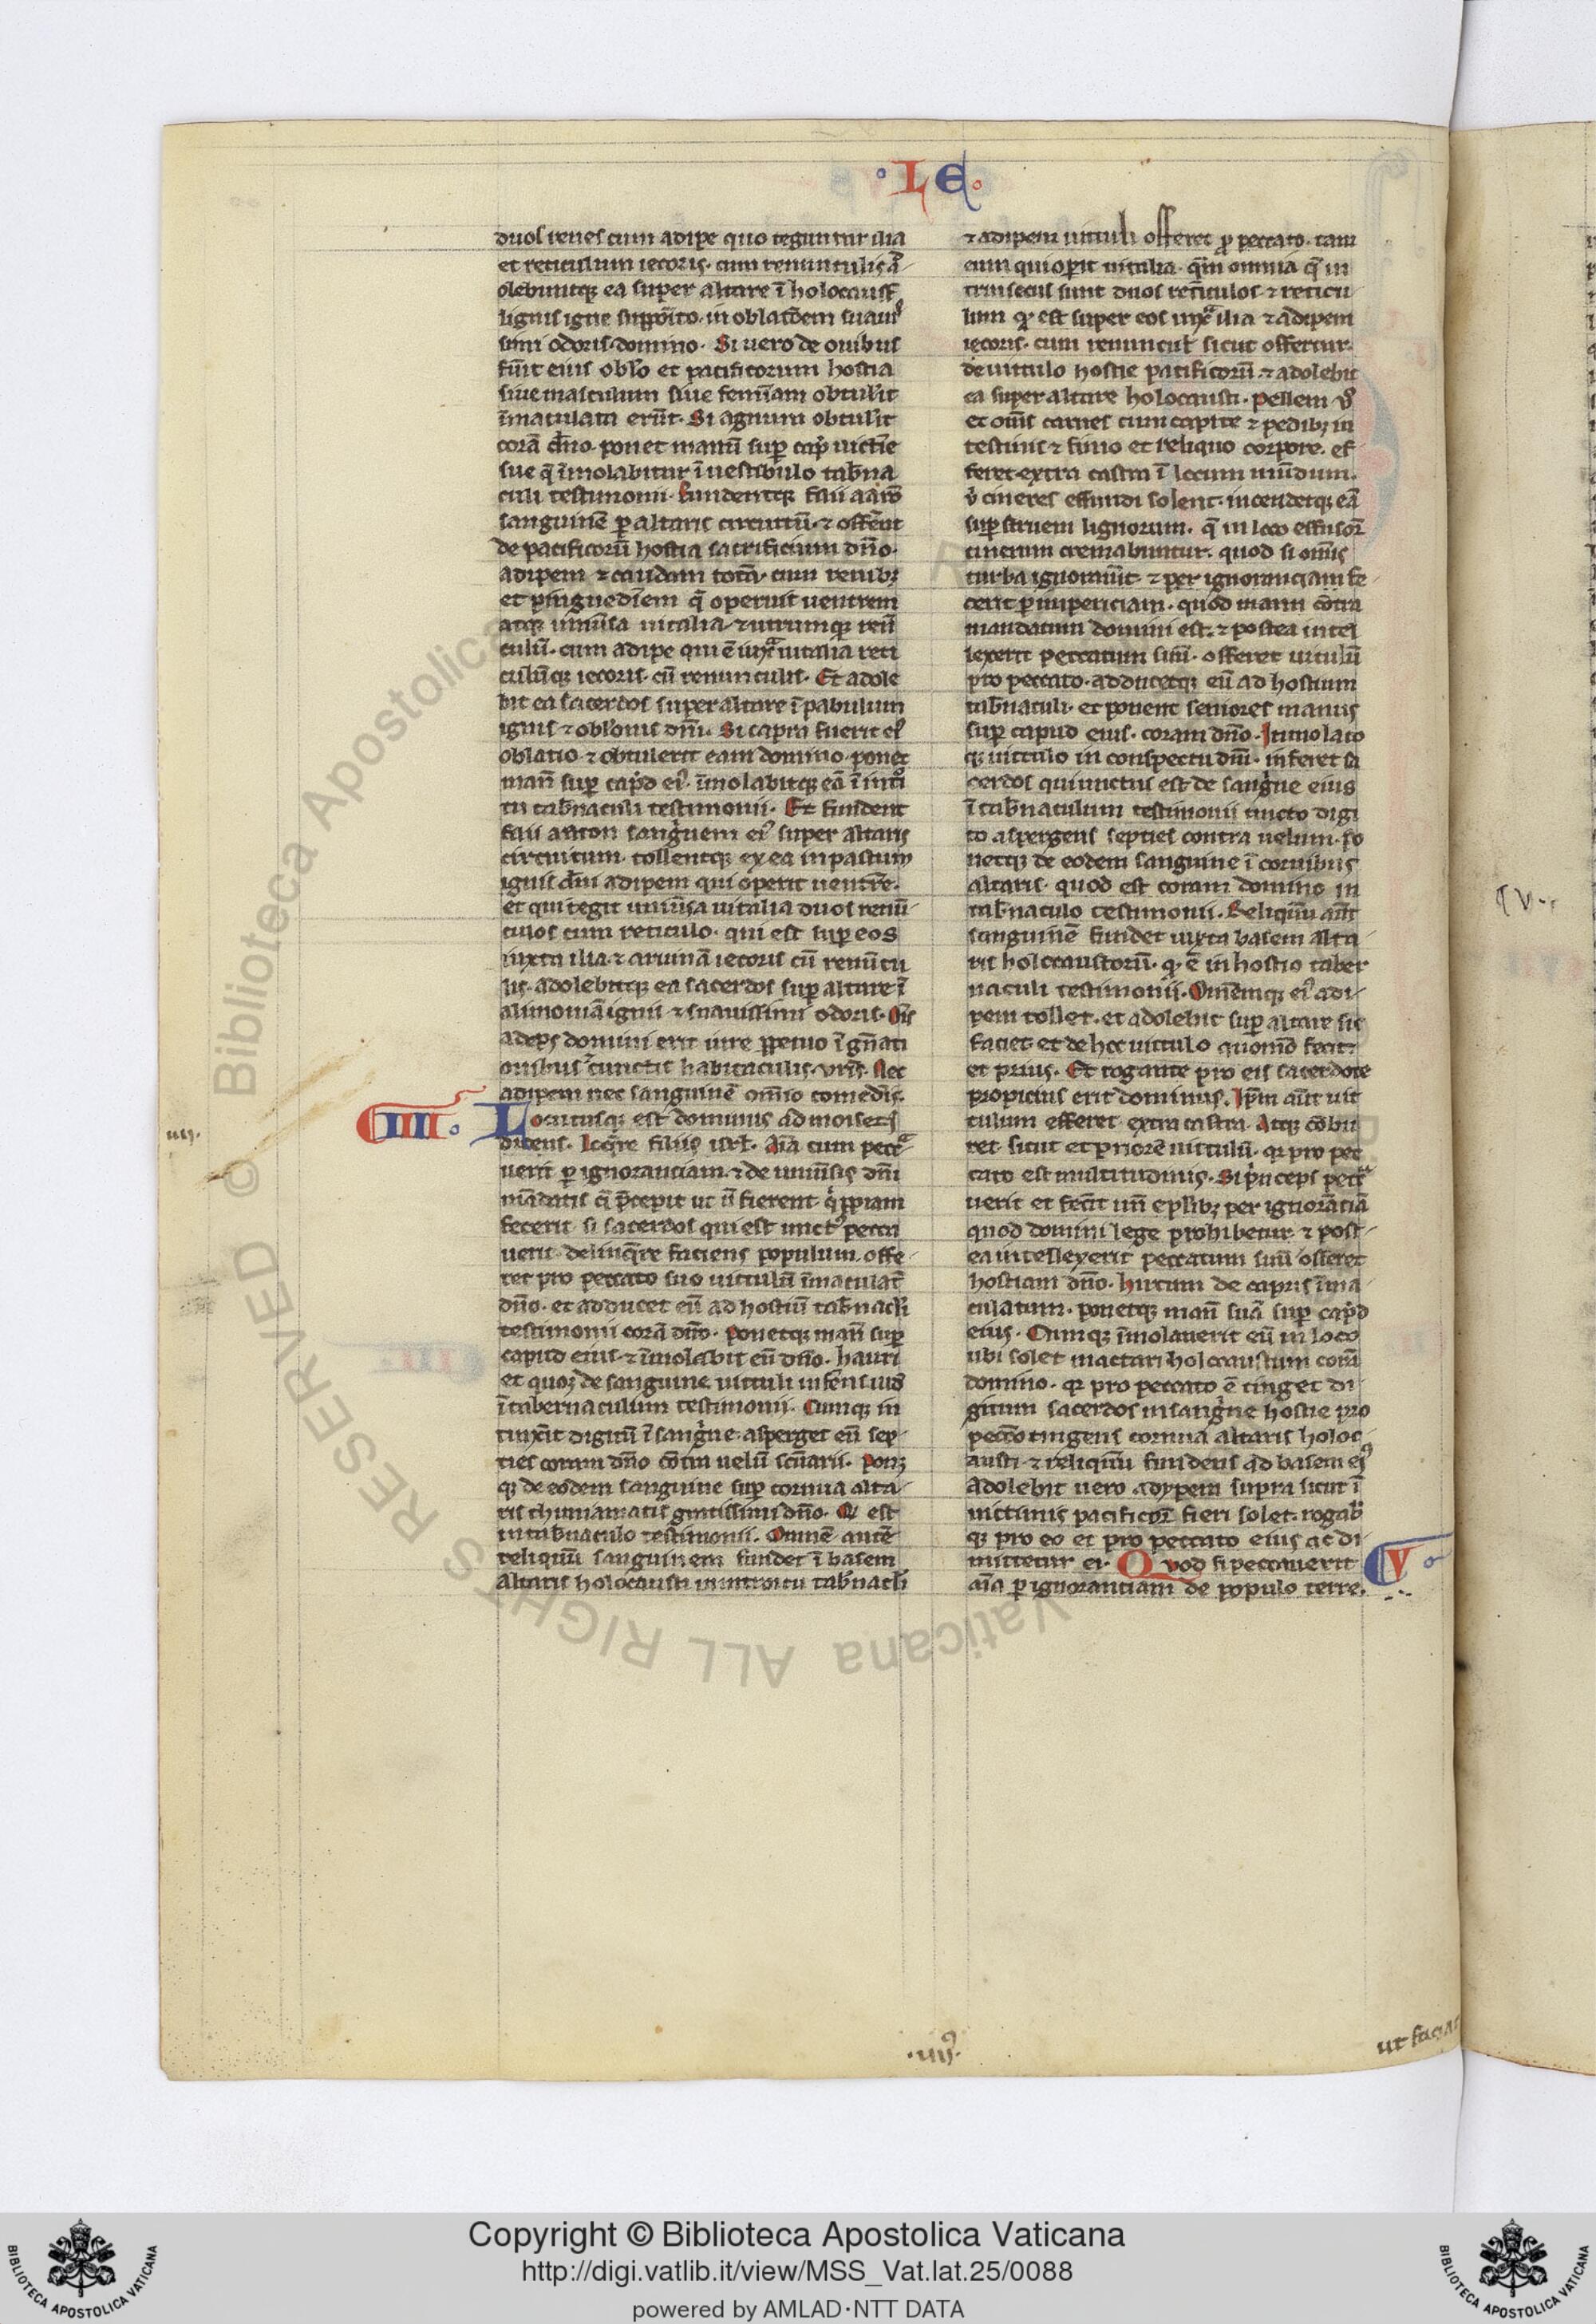 LE
duos renes cum adipe quo teguntur ilia
et reticulum iecoris. cum renunculis ad
olebuntq; ea super altare ī holocaust̄
lignis igne supposito. in oblatōem suauis
simi odoris domino. Si uero de ouibus
fuīt eius oblō et pacificorum hostia
siue masculum siue feminam obtulīt
īmaculata erūt. Si agnum obtulīt
corā dn̄o. ponet manū sup̄ cap̄ uictīe
sue q̄ īmolabitur ī uestibulo tab̄na
culi testimonii. fundentq; filii aarō
sanguinē p̄ altaris circuitū. ⁊ offerēt
de pacificorū hostia sacrificium dn̄o.
adipem ⁊ caudam totā. cum renib;
et pinguedīem q̄ operuit uentrem
atq; uniūsa uitalia. ⁊ utrumq; renū
culū. cum adipe qui ē iuxͣ uitalia reti
culūq; iecoris. cū renunculis. Et adole
bit ea sacerdos super altare ī pabulum
ignis ⁊ oblōnis dn̄i. Si capra fuerit eiꝰ
oblatio ⁊ obtulerit eam domino. ponet
man̄ sup̄ cap̄d eiꝰ. īmolabitq; eā ī introi
tu tab̄naculi testimonii. Et fundent
filii aaron sanguinem eiꝰ super altaris
circuitum. tollentq; ex ea in pastum
ignis dn̄i adipem qui operit uentrē.
et qui tegit uniūsa uitalia duos renū
culos cum reticulo. qui est sup̄ eos
iuxta ilia. ⁊ aruinā iecoris cū renūcu
lis. adolebitq; ea sacerdos sup̄ altare ī
alimoniā ignis ⁊ suauissimi odoris. Oīs
adeps domini erit iure ꝑpetuo ī gn̄ati
onibus ⁊ cunctis habitaculis vrīs. Nec
adipem nec sanguinē omīo comedīs.
IIII. Locutusq; est dominus ad moisen
iiij.
dicens. Loq̄re filiis isrl̄. Aīa cum pecca
uerit p̄ ignoranciam. ⁊ de uniūsis dn̄i
mādatis q̄ p̄cepit ut ū fierent q̇ppiam
fecerit. si sacerdos qui est unctꝰ pecca
uerit delinq̄re faciens populum. offe
ret pro peccato suo uitulū īmaculat̄
dn̄o. et adducet eū ad hostiū tab̄nacl̄i
testimonii corā dn̄o. Ponetq; man̄ sup̄
capud eius. ⁊ īmolabit eū dn̄o. hauri
et quoq; de sanguine uituli inferēs illd
ī tabernaculum testimonij. Cumq; in
tinxīt digitū ī sanguīe. asperget eū sep
ties coram dn̄o cōtra uelū sc̄uarii. Pon;
q; de eodem sanguine sup̄ cornua alta
ris thimiamatis gratissimi dn̄o. Qd est
in tab̄naculo testimonii. Omnē autē
reliquū sanguinem fundet ī basem
altaris holocausti in introitu tab̄nacl̄i
⁊ adipem uituli offeret ꝓ peccato. tam
eum qui oꝑit uitalia. q̄m omnia q̄ in
trinsecus sunt duos renūculos. ⁊ reticu
lum qd est super eos iuxͣ ilia ⁊ adipem
iecoris. cum renuncul̄ sicut offertur
de uitulo hostie pacificorū. ⁊ adolebit
ea super altare holocausti. Pellem v̄o
et om̄s carnes cum capite ⁊ pedib; in
testinis ⁊ fimo et reliquo corpore. ef
feret extra castra ī locum mūdum.
u̇ cineres effundi solent. incendetq; eā
sup̄ struem lignorum. q̄ in loco effusor̄
cinerum cremabuntur. quod si om̄is
turba ignorauīt ⁊ per ignoranciam fe
cerit ꝑ impericiam. quod mauu cōtra
mandatum domini est. ⁊ postea intel
lexerit peccatum suū. offeret uitulū
pro peccato. adducetq; eū ad hostium
tab̄naculi. et ponent seniores manus
sup̄ capud eius. coram dn̄o. Immolato
q; uitulo in conspectu dn̄i. inferet sa
cerdos qui unctus est de sanguīe eius
ī tab̄naculum testimonii tincto digi
to aspergens septies contra uelum. po
netq; de eodem sanguine ī cornibus
altaris. quod est coram domino in
tab̄naculo testimonii. Reliquū aūt
sanguinē fundet iuxta basem alta
ris holocaustorū. qd ē in hostio taber
naculi testimonii. Omēmq; eiꝰ adi
pem tollet. et adolebit sup̄ altare sic
faciet et de hoc uitulo quomō fecit
et prius. Et rogante pro eis sacerdote
propicius erit dominus. Ip̄m aūt uit
tulum efferet extra castra. Atq; cōbu
ret. sicut et priorē uitulū. qr pro pec
cato est multitudinis. Si p̄nceps pecca
uerit et fecīt unū e plib; per ignorāciā
quod domini lege prohibetur ⁊ post
ea intellexerit peccatum suū offeret
hostiam dn̄o. hircum de capris īma
culatum. ponetq; man̄ suā sup̄ cap̄d
eius. Cumq; īmolauerit eū in loco
ubi solet mactari holocaustum corā
domino. qr pro peccato ē tinget di
gitum sacerdos in sanguīe hostie pro
peccō tingens cornua altaris holoc
austi. ⁊ reliquū fundens ad basem eiꝰ
Adolebit uero adypem supra sicut ī
uictimis pacificor̄ fieri solet. rogabi
q; pro eo et pro peccato eius ac di
mittetur ei. Quod si peccauerit V
aīa ꝑ ignoranciam de populo terre.
.iiijꝰ.
ut faciat
© Biblioteca Apostolica Vaticana ALL RIGHTS RESERVED
Copyright © Biblioteca Apostolica Vaticana
http://digi.vatlib.it/view/MSS_Vat.lat.25/0088
powered by AMLAD·NTT DATA
BIBLIOTECA APOSTOLICA VATICANA
BIBLIOTECA APOSTOLICA VATICANA